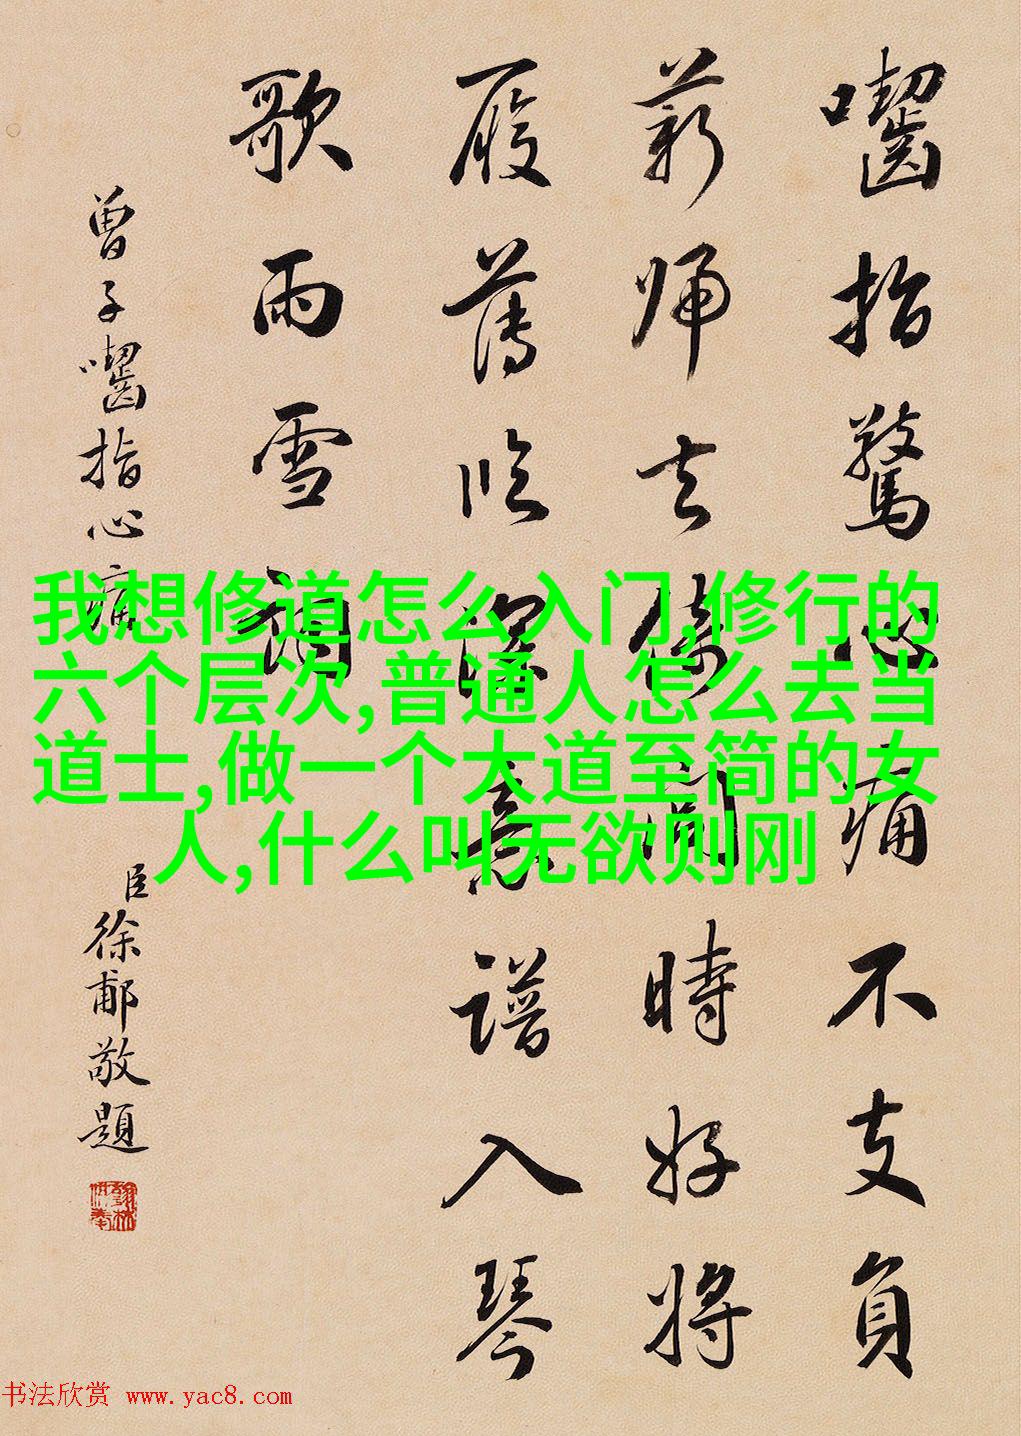 囓指驚心痛不支負
薪歸去倚閭時好將
履薄臨深意譜入琴
歌雨雪
曾子囓指心痛
臣徐郙敬題
我想修道怎么入门,修行的
六个层次,普通人怎么去当
道士,做一个大道至简的女
人,什么叫无欲则刚
书法欣赏 www.yac8.com